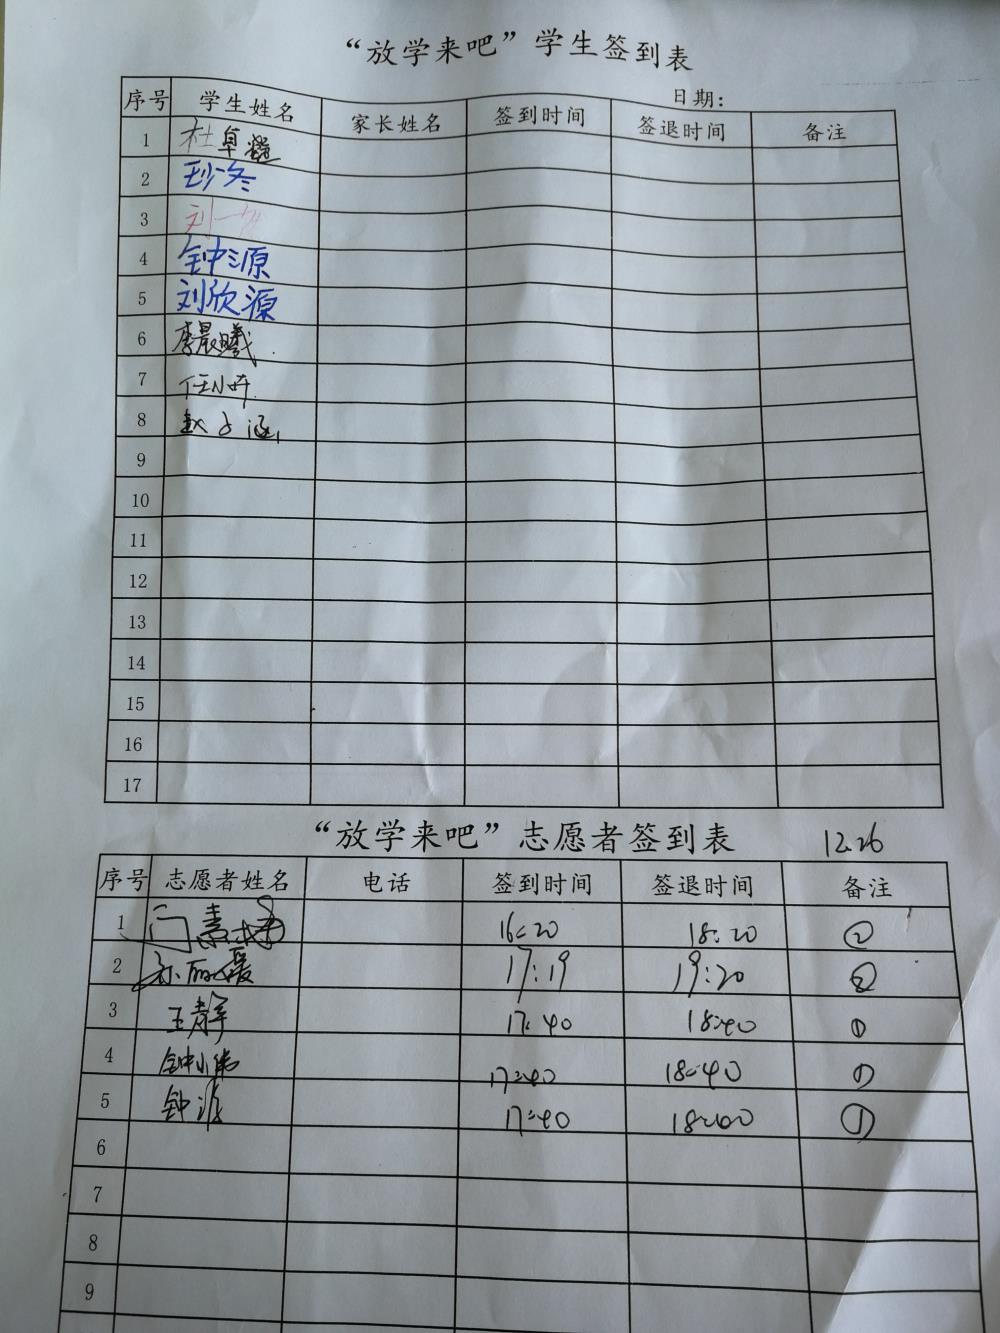 “放学来吧”学生签到表
日期：
序号 学生姓名 家长姓名 签到时间 签退时间 备注
1 杜卓
2
3 刘一
4 钟源
5 刘欣源
6 李晨曦
7 任小
8 赵子涵
9
10
11
12
13
14
15
16
17
“放学来吧”志愿者签到表 12.26
序号 志愿者姓名 电话 签到时间 签退时间 备注
1 门素 16:20 18:20 ②
2 孙丽媛 17:19 19:20 ②
3 王静 17:40 18:40 ①
4 钟小 17:40 18:40 ①
5 钟源 17:40 ①
6
7
8
9